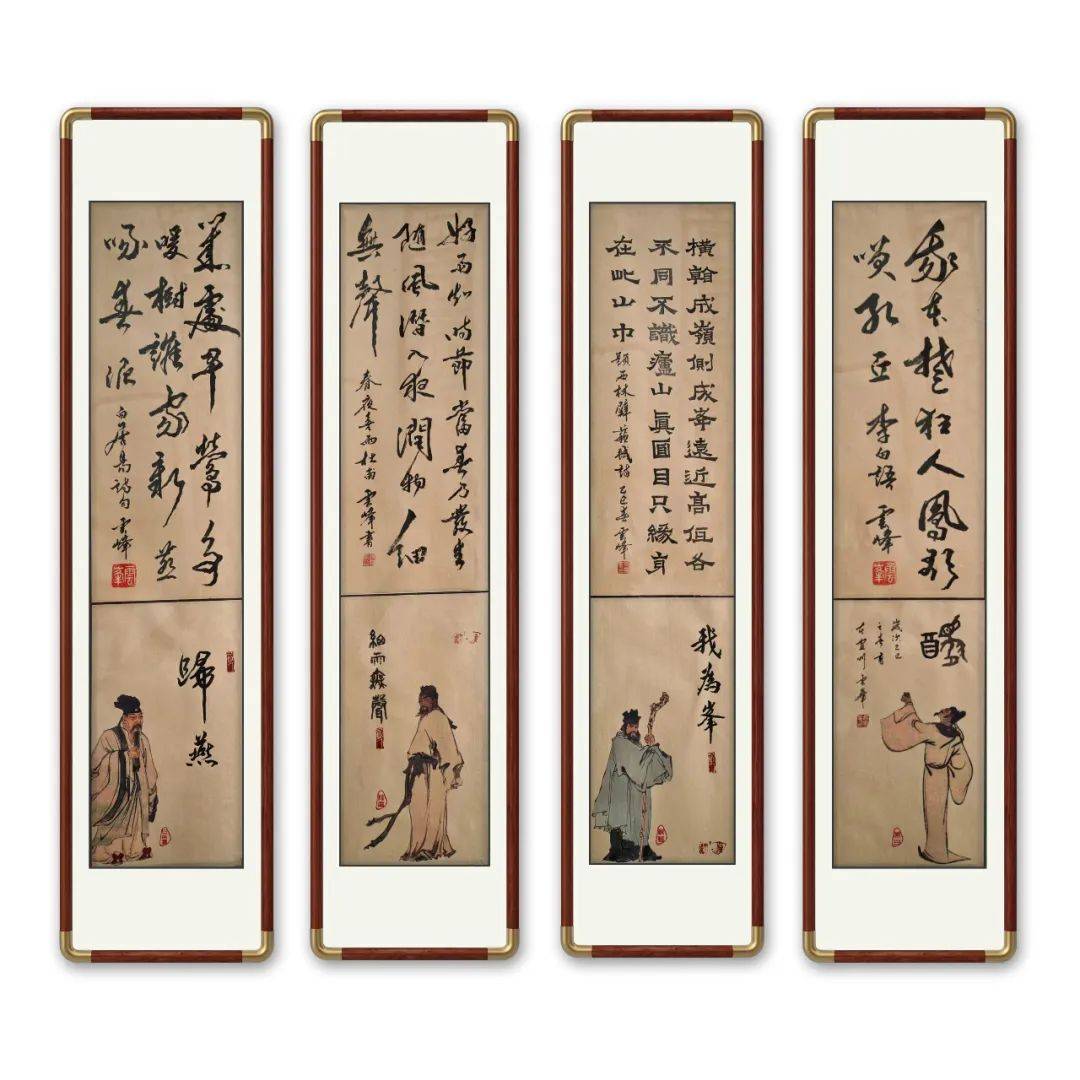 我本楚狂人鳳歌
咲孔丘 李白語 雲峰
雲峯
醉
歲次乙巳
之春書
州雲峰
橫看成嶺側成峯遠近高低各
不同不識廬山眞面目只緣身
在此山中 題西林壁蘇軾詩 乙巳春雲峰
我為峯
好雨知時節當春乃發生
随風潛入夜潤物細
無聲 春夜喜雨杜甫 雲峰書
細雨無聲
幾處早鶯爭
暖樹誰家新燕
啄春泥 白居易詩句 雲峰
雲峯
歸燕